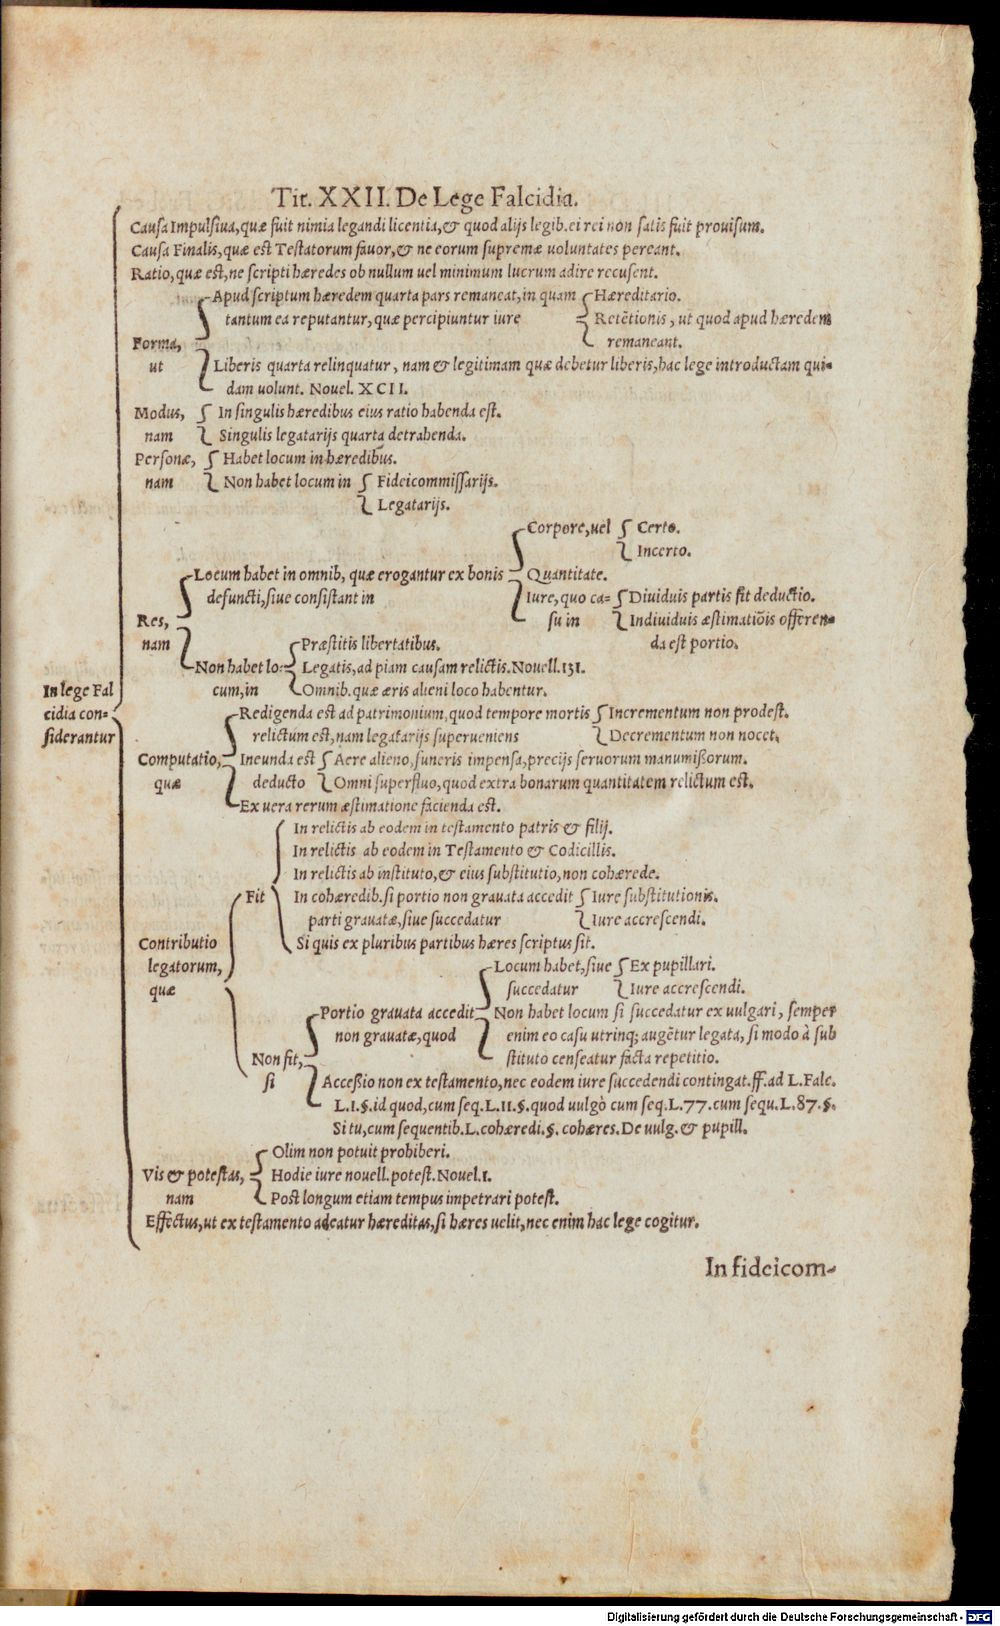 Tit. XXII. De Lege Falcidia.
Causa Impulsiua, quæ fuit nimia legandi licentia, & quod alijs legib. ei rei non satis fuit prouisum.
Causa Finalis, quæ est Testatorum fauor, & ne eorum supremæ uoluntates pereant.
Ratio, quæ est, ne scripti hæredes ob nullum uel minimum lucrum adire recusent.
Apud scriptum hæredem quarta pars remaneat, in quam Hæreditario.
tantum ea reputantur, quæ percipiuntur iure Retētionis, ut quod apud hæredem
Forma, remaneant.
ut Liberis quarta relinquatur, nam & legitimam quæ debetur liberis, hac lege introductam qui-
dam uolunt. Nouel. XCII.
Modus, In singulis hæredibus eius ratio habenda est.
nam Singulis legatarijs quarta detrahenda.
Personæ, Habet locum in hæredibus.
nam Non habet locum in Fideicommissarijs.
Legatarijs.
Corpore, uel Certo.
Incerto.
Locum habet in omnib, quæ erogantur ex bonis Quantitate.
defuncti, siue consistant in Iure, quo ca- Diuiduis partis fit deductio.
Res, su in Indiuiduis æstimatiōis offeren-
nam Præstitis libertatibus. da est portio.
Non habet lo- Legatis, ad piam causam relictis. Nouell. 131.
cum, in Omnib. quæ æris alieni loco habentur.
In lege Fal
cidia con-
siderantur
Redigenda est ad patrimonium, quod tempore mortis Incrementum non prodest.
relictum est, nam legatarijs superueniens Decrementum non nocet.
Computatio, Ineunda est Aere alieno, funeris impensa, precijs seruorum manumißorum.
quæ deducto Omni superfluo, quod extra bonarum quantitatem relictum est.
Ex uera rerum æstimatione facienda est.
In relictis ab eodem in testamento patris & filij.
In relictis ab eodem in Testamento & Codicillis.
In relictis ab instituto, & eius substitutio, non cohærede.
Fit In cohæredib. si portio non grauata accedit Iure substitutionis.
parti grauatæ, siue succedatur Iure accrescendi.
Contributio Si quis ex pluribus partibus hæres scriptus sit.
legatorum, Locum habet, siue Ex pupillari.
quæ succedatur Iure accrescendi.
Portio grauata accedit Non habet locum si succedatur ex uulgari, semper
non grauatæ, quod enim eo casu utrinq; augētur legata, si modo à sub
Non fit, stituto censeatur facta repetitio.
si Acceßio non ex testamento, nec eodem iure succedendi contingat. ff. ad L. Falc.
L. 1. §. id quod, cum seq. L. 11. §. quod uulgò cum seq. L. 77. cum sequ. L. 87. §.
Si tu, cum sequentib. L. cohæredi. §. cohæres. De uulg. & pupill.
Olim non potuit prohiberi.
Vis & potestas, Hodie iure nouell. potest. Nouel. 1.
nam Post longum etiam tempus impetrari potest.
Effectus, ut ex testamento adeatur hæreditas, si hæres uelit, nec enim hac lege cogitur.
In fideicom-
Digitalisierung gefördert durch die Deutsche Forschungsgemeinschaft - DFG